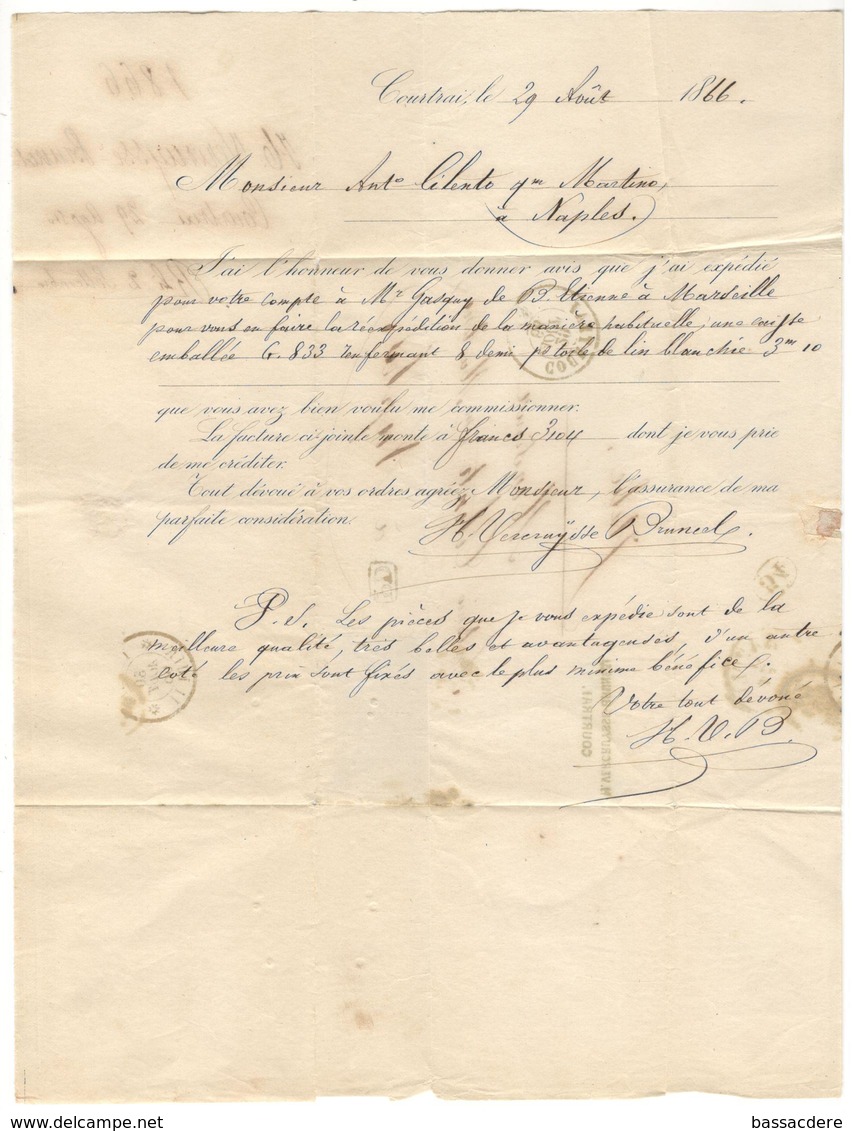 Courtrai, le 29 Août 1866.
Monsieur Ant.o Cilento qm Martino,
à Naples.
J'ai l'honneur de vous donner avis que j'ai expédié
pour votre compte à Mr Gasguy de B. Etienne à Marseille
pour vous en faire la réexpédition de la manière habituelle, une caisse
emballée G. 833 renfermant 8 demi ps toile de lin blanchie 3m 10
que vous avez bien voulu me commissionner.
La facture ci-jointe monte à francs 3104 dont je vous prie
de me créditer.
Tout dévoué à vos ordres agréez, Monsieur, l'assurance de ma
parfaite considération.
H. Vercruÿsse Bruneel
P.S. Les pièces que je vous expédie sont de la
meilleure qualité, très belles et avantageuses, d'un autre
coté les prix sont fixés avec le plus minime bénéfice.
Votre tout dévoué
H. V. B.
COURTRAI.
bassacdere